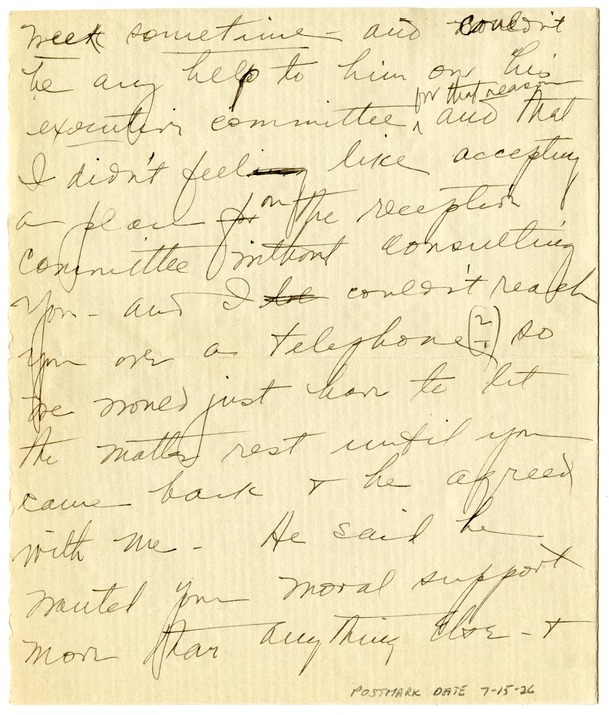 week sometime - and couldn't
be any help to him on his
executive committee for that reason and that
I didn't feel like accepting
a place on the reception
committee without consulting
you - and I couldn't reach
you over a telephone so
we would just have to let
the matter rest until you
came back & he agreed
with me - He said he
wanted your moral support
more than anything else - &
POSTMARK DATE 7-15-26